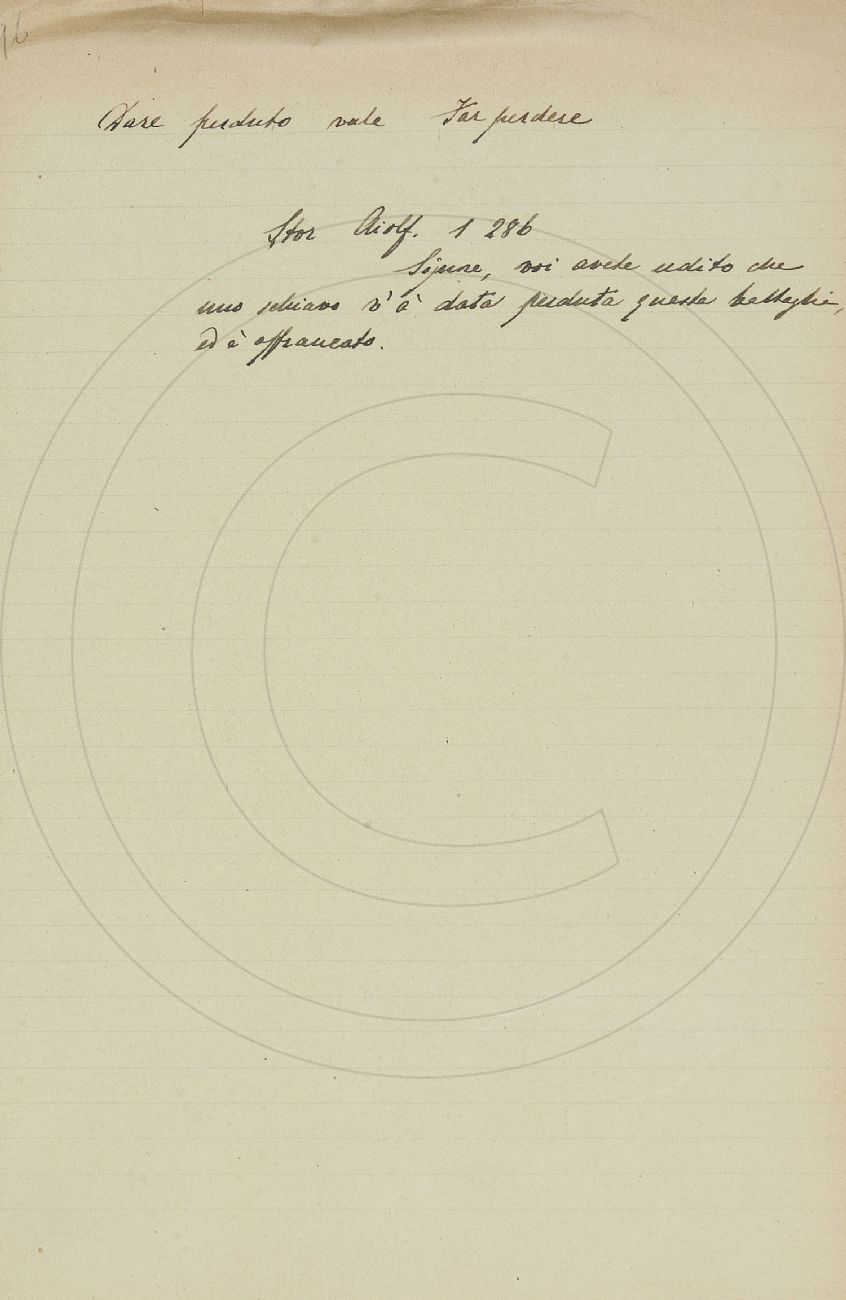 96
Dare perduto vale Far perdere
Stor Aiolf. 1 286
Signore, voi avete udito che
uno schiavo v'à data perduta questa battaglia,
ed è affrancato.